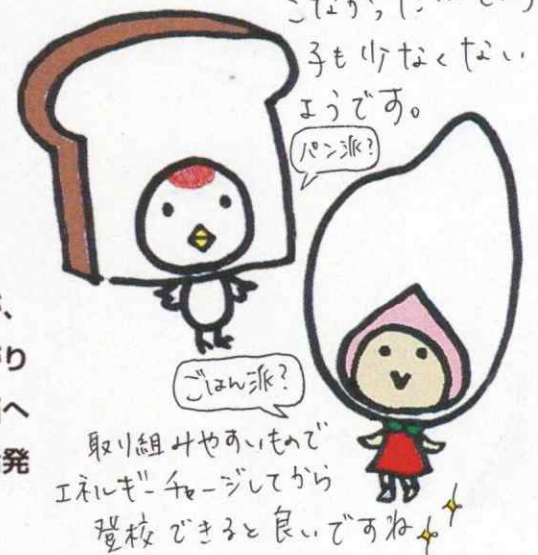 子も少なくない
ようです。
パン派?
、
がり
へ
発
ごはん派?
取り組みやすいもので
エネルギーチャージしてから
登校できると良いですね